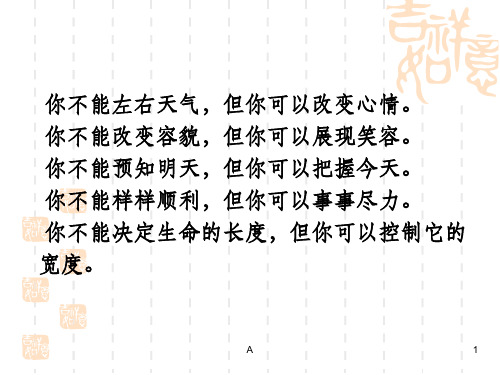 吉祥如意
你不能左右天气，但你可以改变心情。
你不能改变容貌，但你可以展现笑容。
你不能预知明天，但你可以把握今天。
你不能样样顺利，但你可以事事尽力。
你不能决定生命的长度，但你可以控制它的
宽度。
A
1